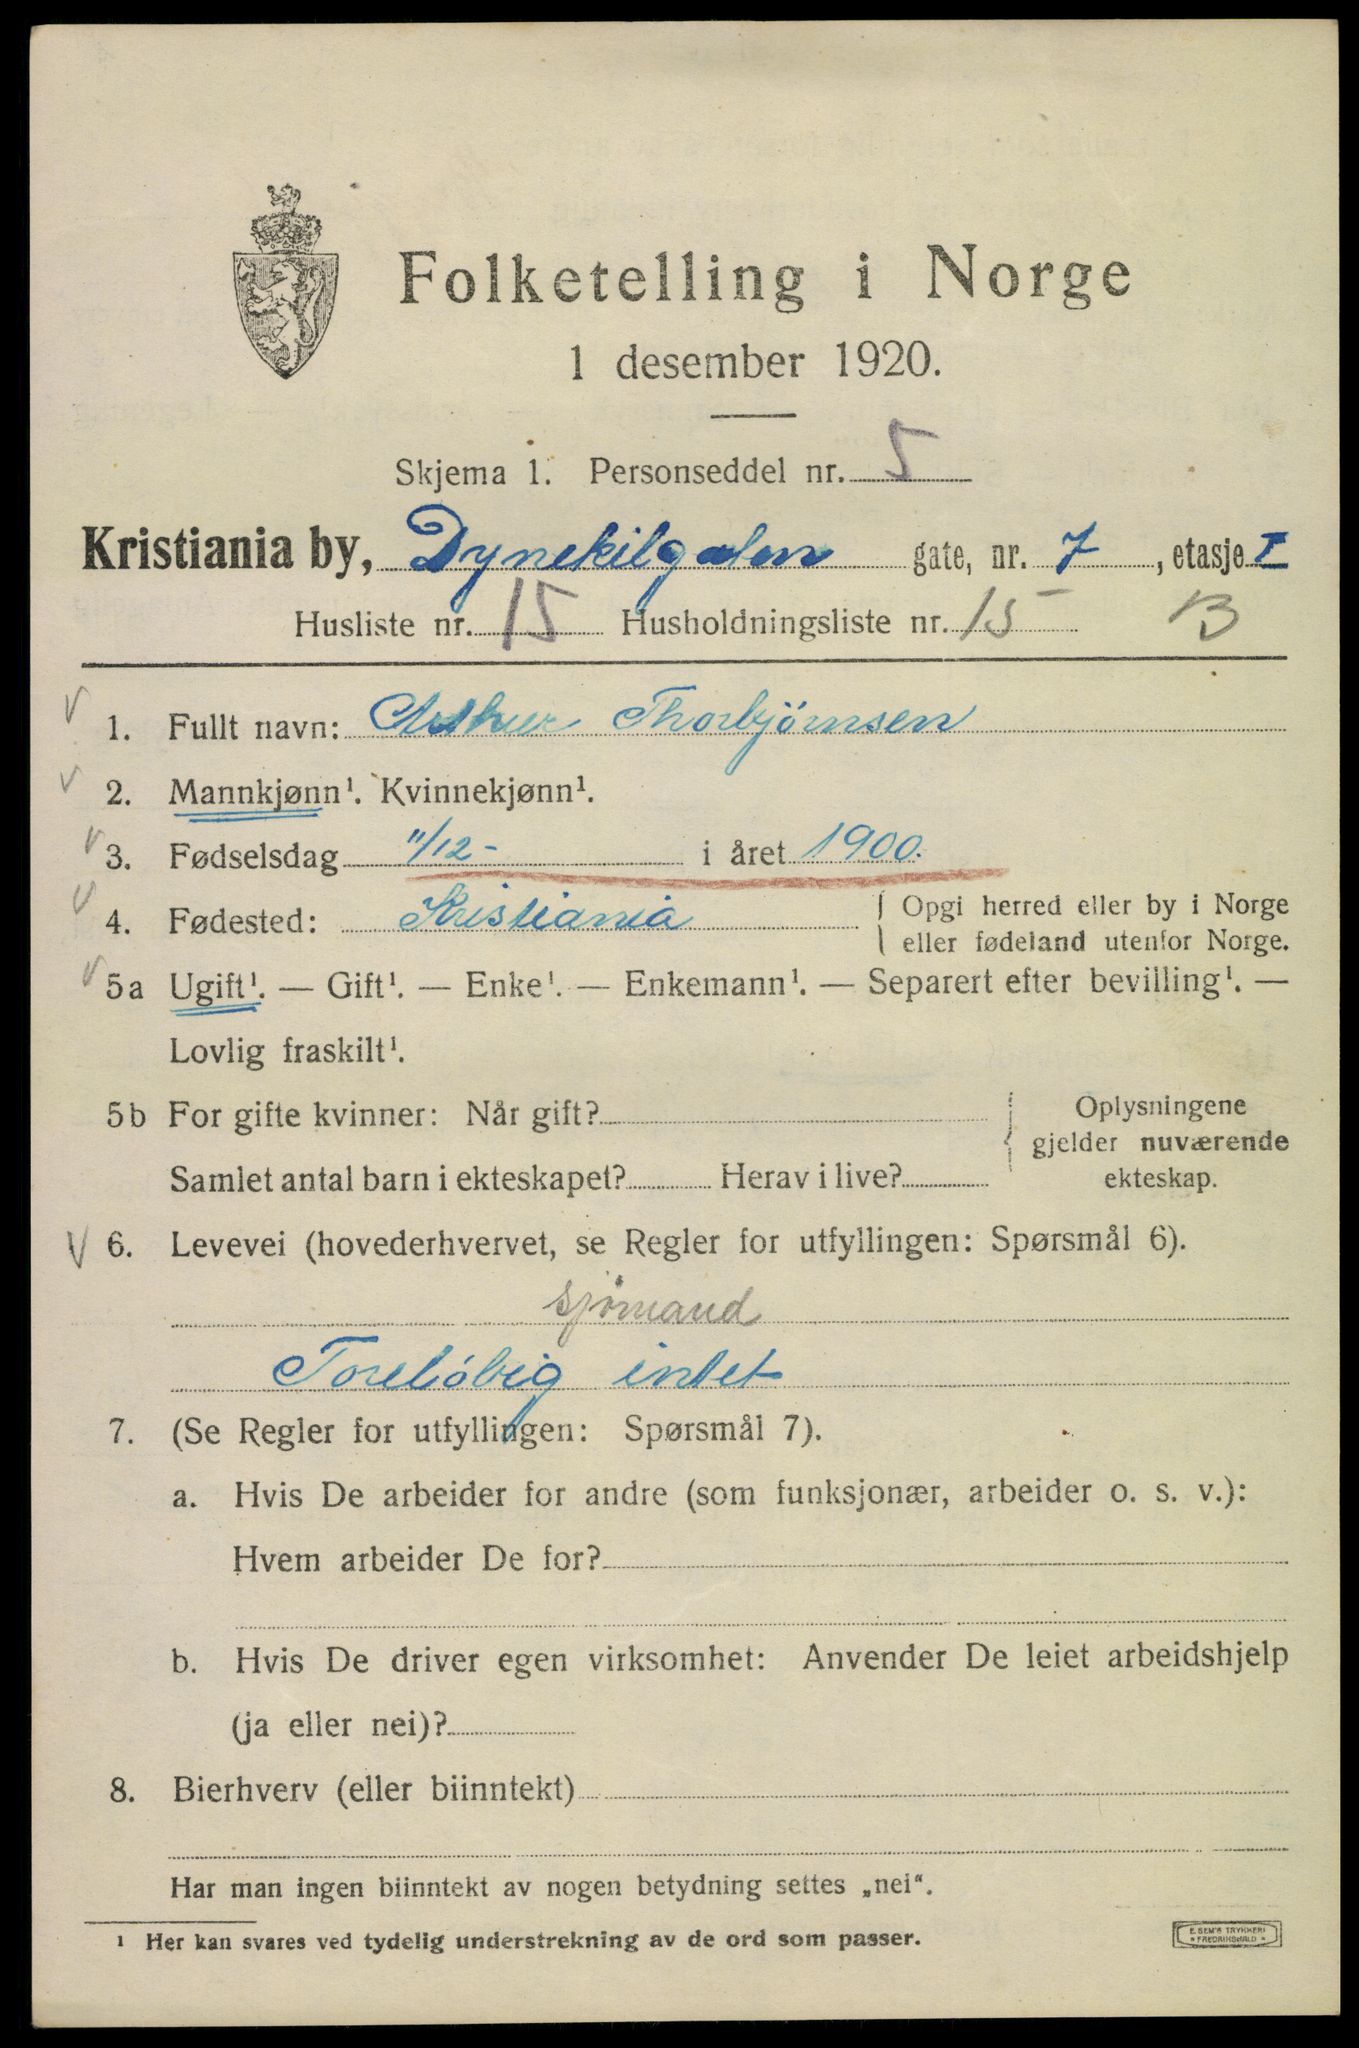 Folketelling i Norge
1 desember 1920.
Skjema 1. Personseddel nr. 5
Kristiania by, Dynekilgaten gate, nr. 7, etasje I
Husliste nr. 15 Husholdningsliste nr. 15 B
1. Fullt navn: Arthur Thorbjørnsen
2. Mannkjønn¹. Kvinnekjønn¹.
3. Fødselsdag 11/12- i året 1900.
4. Fødested: Kristiania { Opgi herred eller by i Norge
eller fødeland utenfor Norge.
5a Ugift¹. — Gift¹. — Enke¹. — Enkemann¹. — Separert efter bevilling¹. —
Lovlig fraskilt¹.
5b For gifte kvinner: Når gift? { Oplysningene
gjelder nuværende
Samlet antal barn i ekteskapet? Herav i live? ekteskap.
6. Levevei (hovederhvervet, se Regler for utfyllingen: Spørsmål 6).
sjømand
Foreløbig intet
7. (Se Regler for utfyllingen: Spørsmål 7).
a. Hvis De arbeider for andre (som funksjonær, arbeider o. s. v.):
Hvem arbeider De for?
b. Hvis De driver egen virksomhet: Anvender De leiet arbeidshjelp
(ja eller nei)?
8. Bierhverv (eller biinntekt)
Har man ingen biinntekt av nogen betydning settes „nei“.
¹ Her kan svares ved tydelig understrekning av de ord som passer.
E. SEM'S TRYKKERI
FREDRIKSHALD